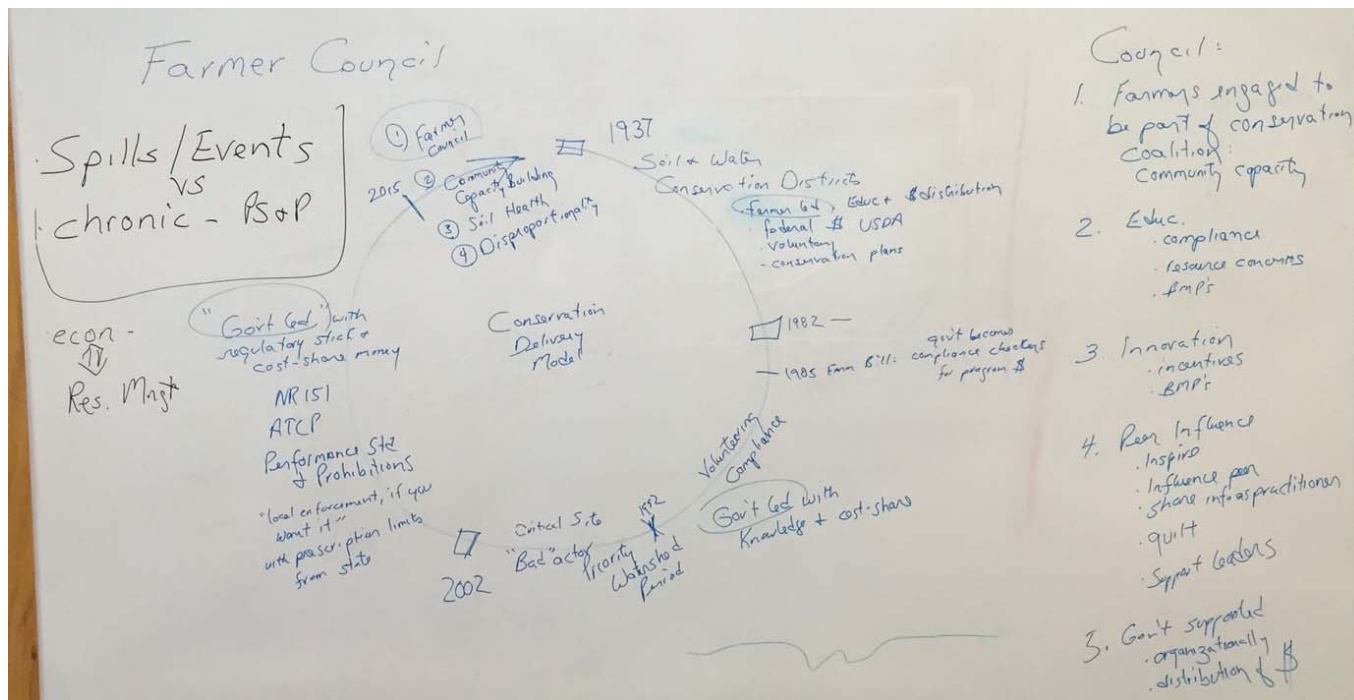 Farmer Council
· Spills/Events
vs
· chronic - PS&P
econ -
Res. Mngt
① Farmer
Council
2015
② Community
Capacity Building
③ Soil Health
④ Disproportionality
1937
Soil & Water
Conservation Districts
· farmer led, Educ & $ distribution
· federal $ USDA
· voluntary
- conservation plans
Conservation
Delivery
Model
1982 —
— 1985 Farm Bill: gov't becomes
compliance checkers
for program $
Volunteering
Compliance
Gov't led with
Knowledge & cost-share
1992
Priority
Watershed
Period
Critical Site
"Bad" actor
2002
"Gov't led" with
regulatory stick &
cost-share money
NR 151
ATCP
Performance Std
& Prohibitions
"local enforcement, if you
want it"
with prescription limits
from state
Council:
1. Farmers engaged to
be part of conservation
coalition:
community capacity
2. Educ.
· compliance
· resource concerns
· BMP's
3. Innovation
· incentives
· BMP's
4. Peer Influence
· Inspire
· Influence peer
· share info as practitioner
· quilt
· Support leaders
5. Gov't supported
· organizationally
· distribution of $